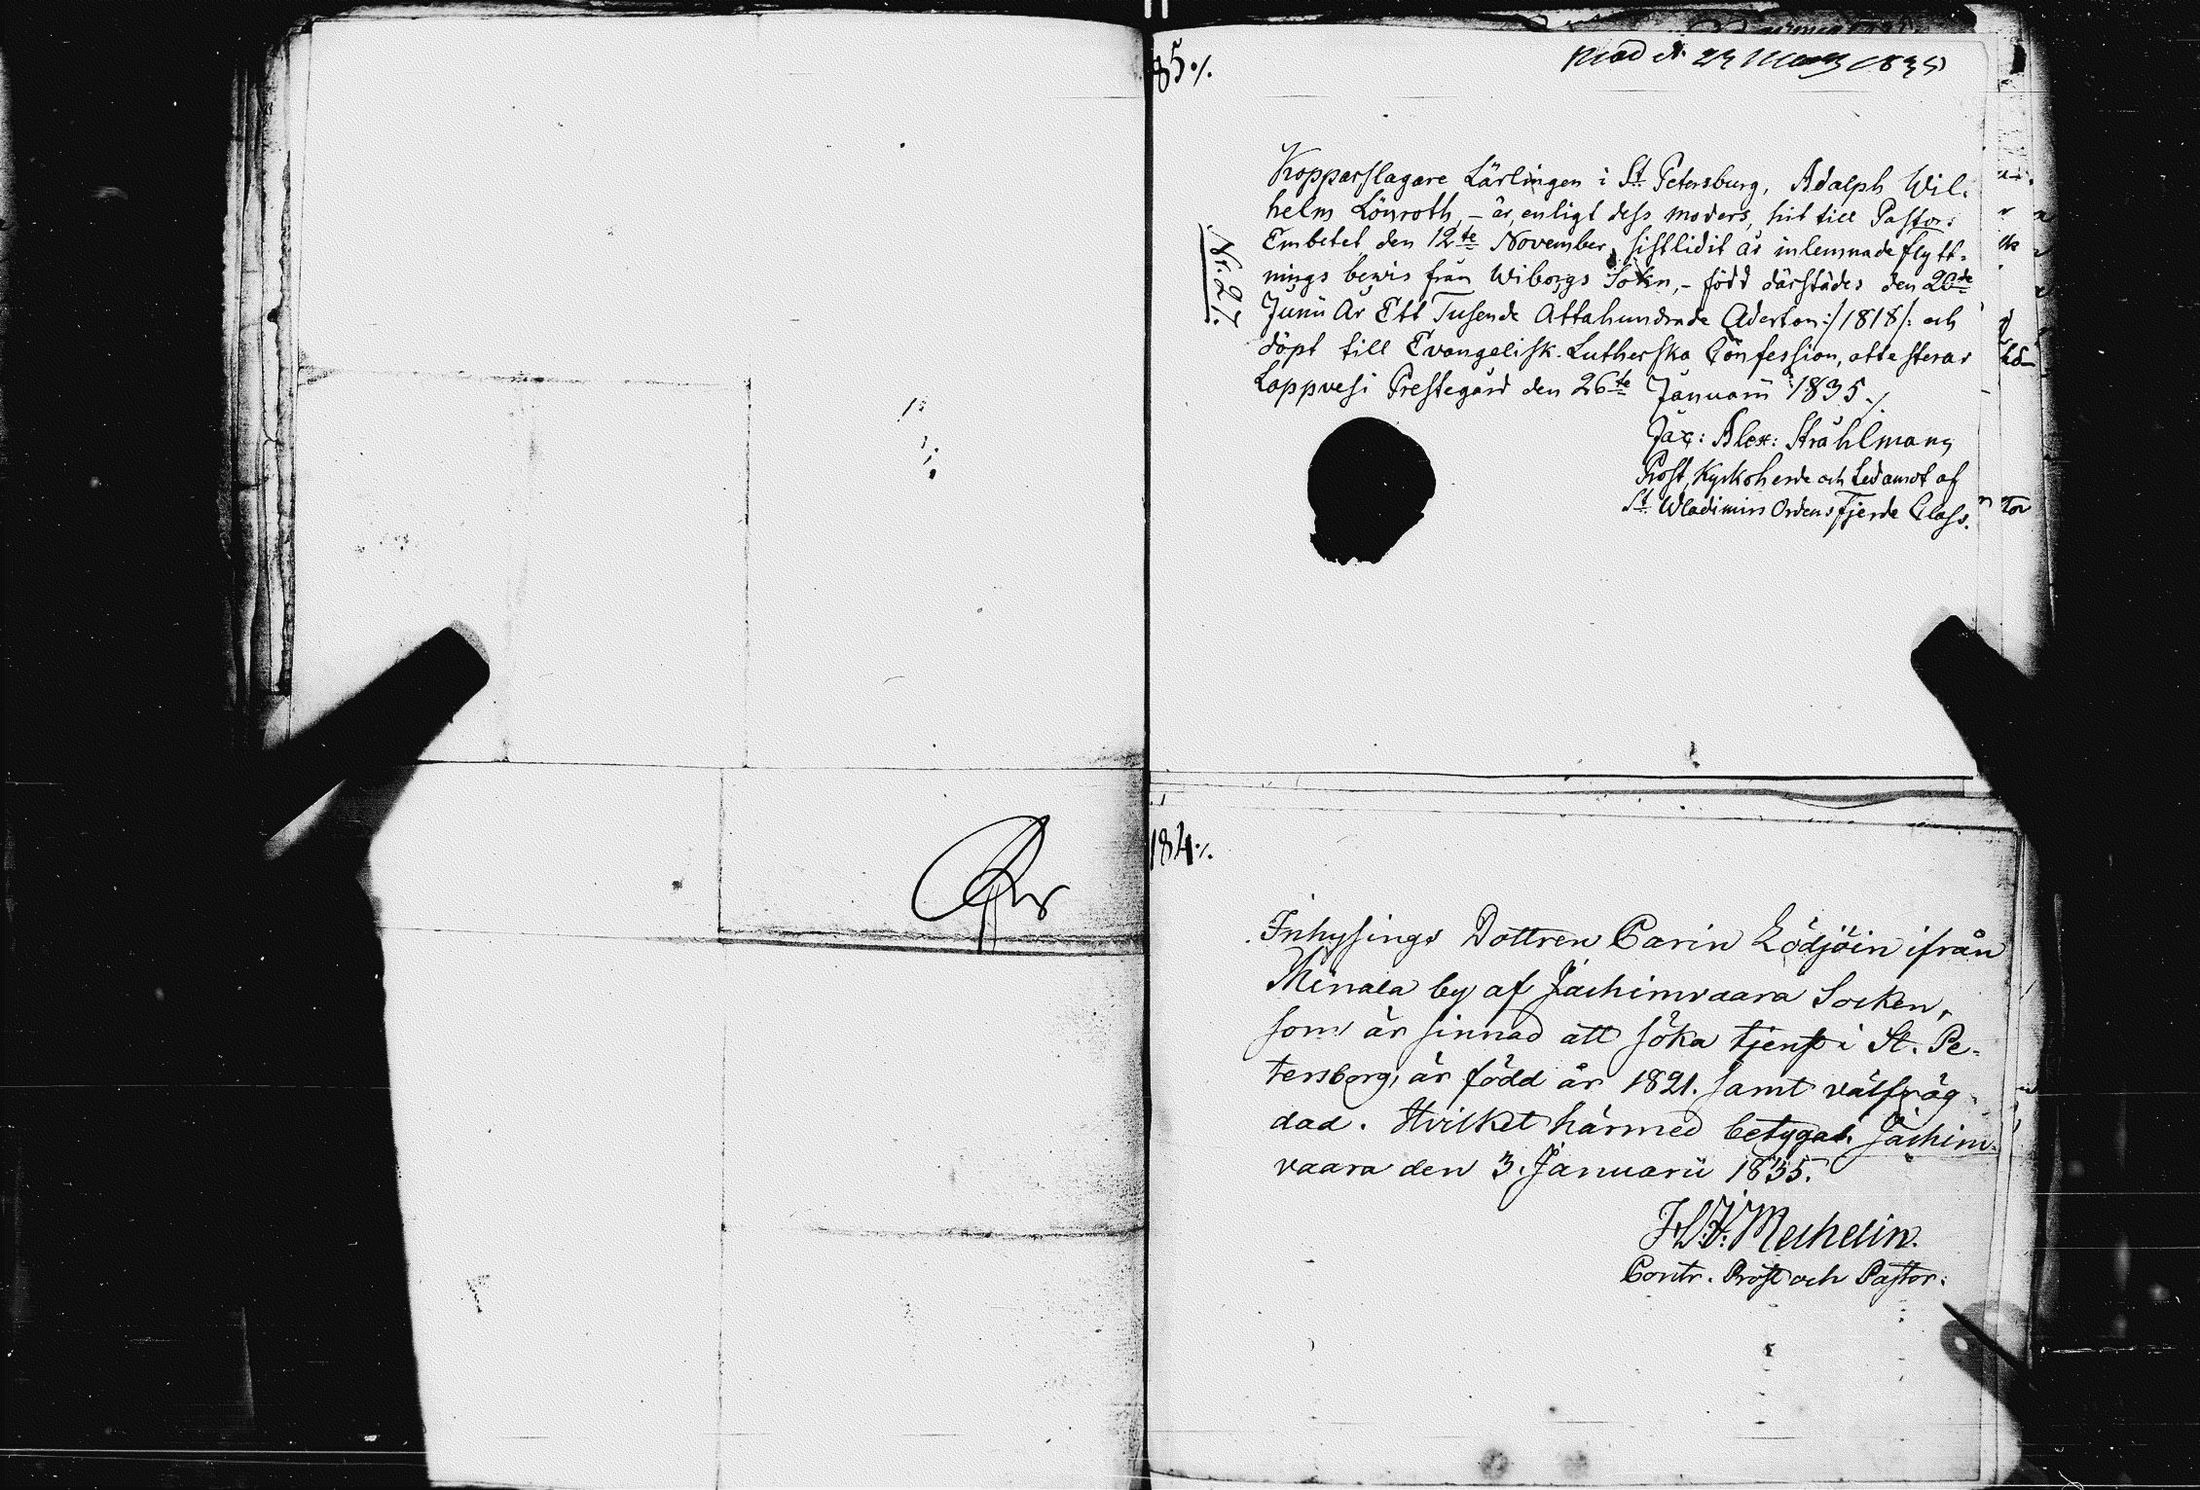 85./.
d. 23 Mars 1835
Nr. 27.
Kopparslagare Lärlingen i St Petersburg, Adolph Wil-
helm Lönroth, - är, enligt dess moders, hit till Pastors
Embetet den 12te November sistlidit år inlemnade flytt-
nings bewis från Wiborgs Sokn, - född därstädes den 20de
Junii År Ett Tusende Åttahundrade Aderton :/1818/: och
döpt till Evangelisk-Lutherska Confession, attesterar
Lappvesi Prestegård den 26te Januarii 1835./.
Jac: Alex: Stråhlmann
Prost, Kyrkoherde och Ledamot af
St Wladimirs Ordens Fjerde Class.
184./.
Inhysings Dottren Carin Lödjöin ifrån
Minala by af Jächimvaara Socken,
som är sinnad att söka tjenst i St. Pe-
tersborg, är född år 1821. samt välfräg-
dad. Hvilket härmed betygat. Jächim-
vaara den 3. Januarii 1835.
Mechelin.
Contr. Prost och Pastor.